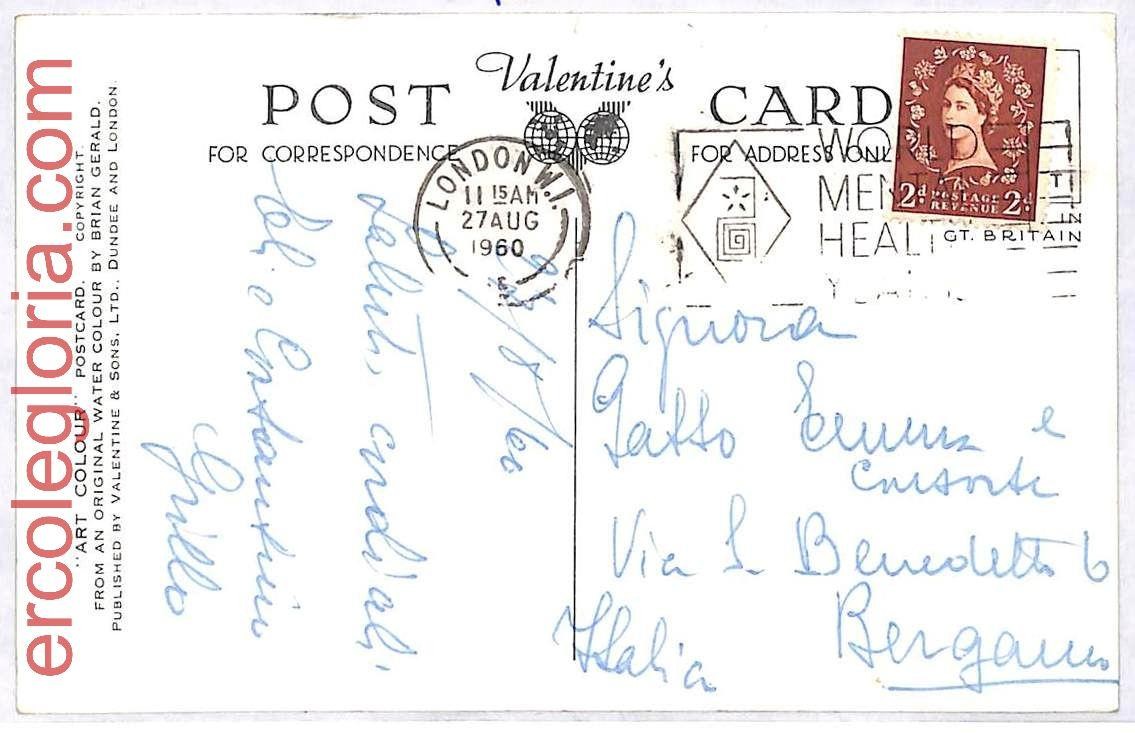 Valentine's
POST CARD
FOR CORRESPONDENCE
FOR ADDRESS ONL
LONDON W.1.
11 15 AM
27 AUG
1960
WORLD
MEN
HEAL
2d POSTAGE 2d
REVENUE
T
IN
GT. BRITAIN
"ART COLOUR" POSTCARD. COPYRIGHT.
FROM AN ORIGINAL WATER COLOUR BY BRIAN GERALD.
PUBLISHED BY VALENTINE & SONS, LTD., DUNDEE AND LONDON.
/8/60
Saluti cordiali
e Costantino
Grillo
Signora
Gatto Emma e
consorte
Via S. Benedetto 6
Bergamo
Italia
ercolegloria.com